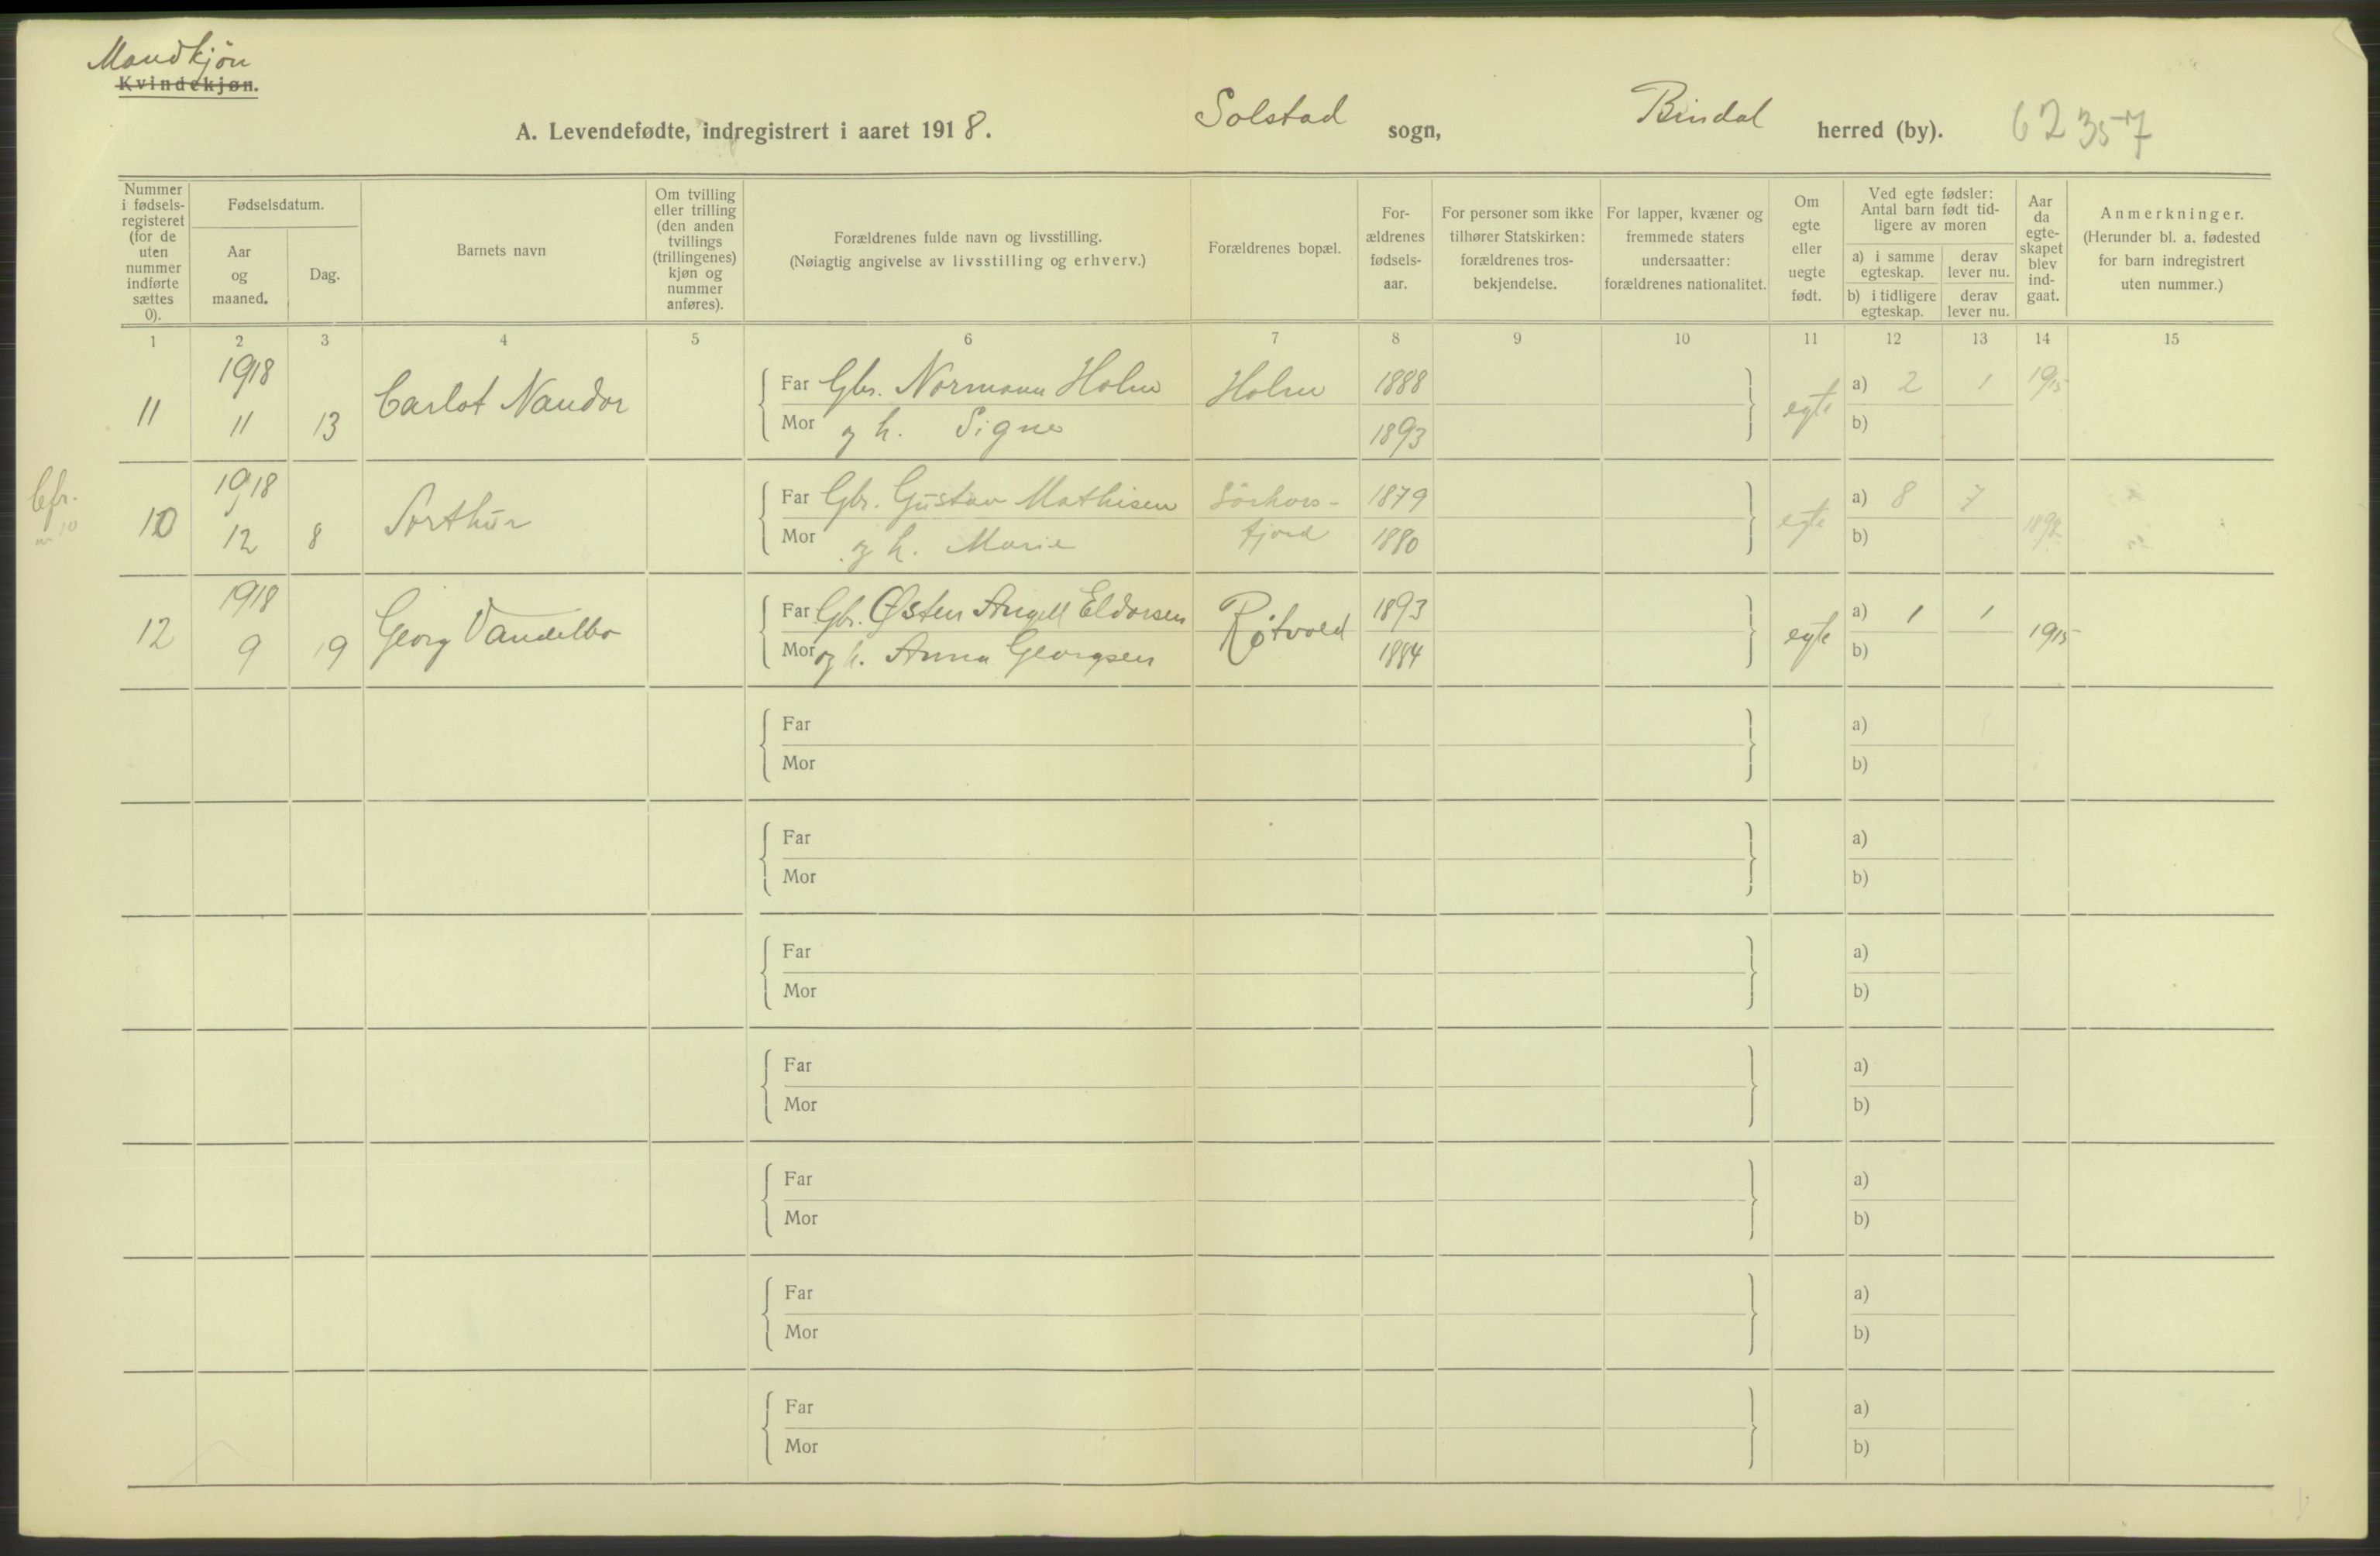 Mandkjøn
Kvindekjøn.
A. Levendefødte, indregistrert i aaret 1918. Solstad sogn, Bindal herred (by). 62357
Nummer i fødsels-registeret (for de uten nummer indførte sættes 0).
Fødselsdatum.
Aar og maaned.
Dag.
Barnets navn
Om tvilling eller trilling (den anden tvillings (trillingenes) kjøn og nummer anføres).
Forældrenes fulde navn og livsstilling.
(Nøiagtig angivelse av livsstilling og erhverv.)
Forældrenes bopæl.
For-ældrenes fødsels-aar.
For personer som ikke tilhører Statskirken: forældrenes tros-bekjendelse.
For lapper, kvæner og fremmede staters undersaatter: forældrenes nationalitet.
Om egte eller uegte født.
Ved egte fødsler: Antal barn født tid-ligere av moren
a) i samme egteskap.
derav lever nu.
b) i tidligere egteskap.
derav lever nu.
Aar da egte-skapet blev ind-gaat.
Anmerkninger.
(Herunder bl. a. fødested for barn indregistrert uten nummer.)
1 2 3 4 5 6 7 8 9 10 11 12 13 14 15
11 1918 11 13 Carlot Nandor Far Gbr. Normann Holm Holm 1888 egte a) 2 1 1915
Mor og h. Signe 1893 b)
Cfr.
nr 10
10 1918 12 8 Arthur Far Gbr. Gustav Mathisen Sørhors- 1879 egte a) 8 7 1898
Mor og h. Marie fjord 1880 b)
12 1918 9 19 Georg Vandelbo Far Gbr. Østen Angell Eldorsen Røtvold 1893 egte a) 1 1 1915
Mor og h. Anna Georgsen 1884 b)
Far a)
Mor b)
Far a)
Mor b)
Far a)
Mor b)
Far a)
Mor b)
Far a)
Mor b)
Far a)
Mor b)
Far a)
Mor b)